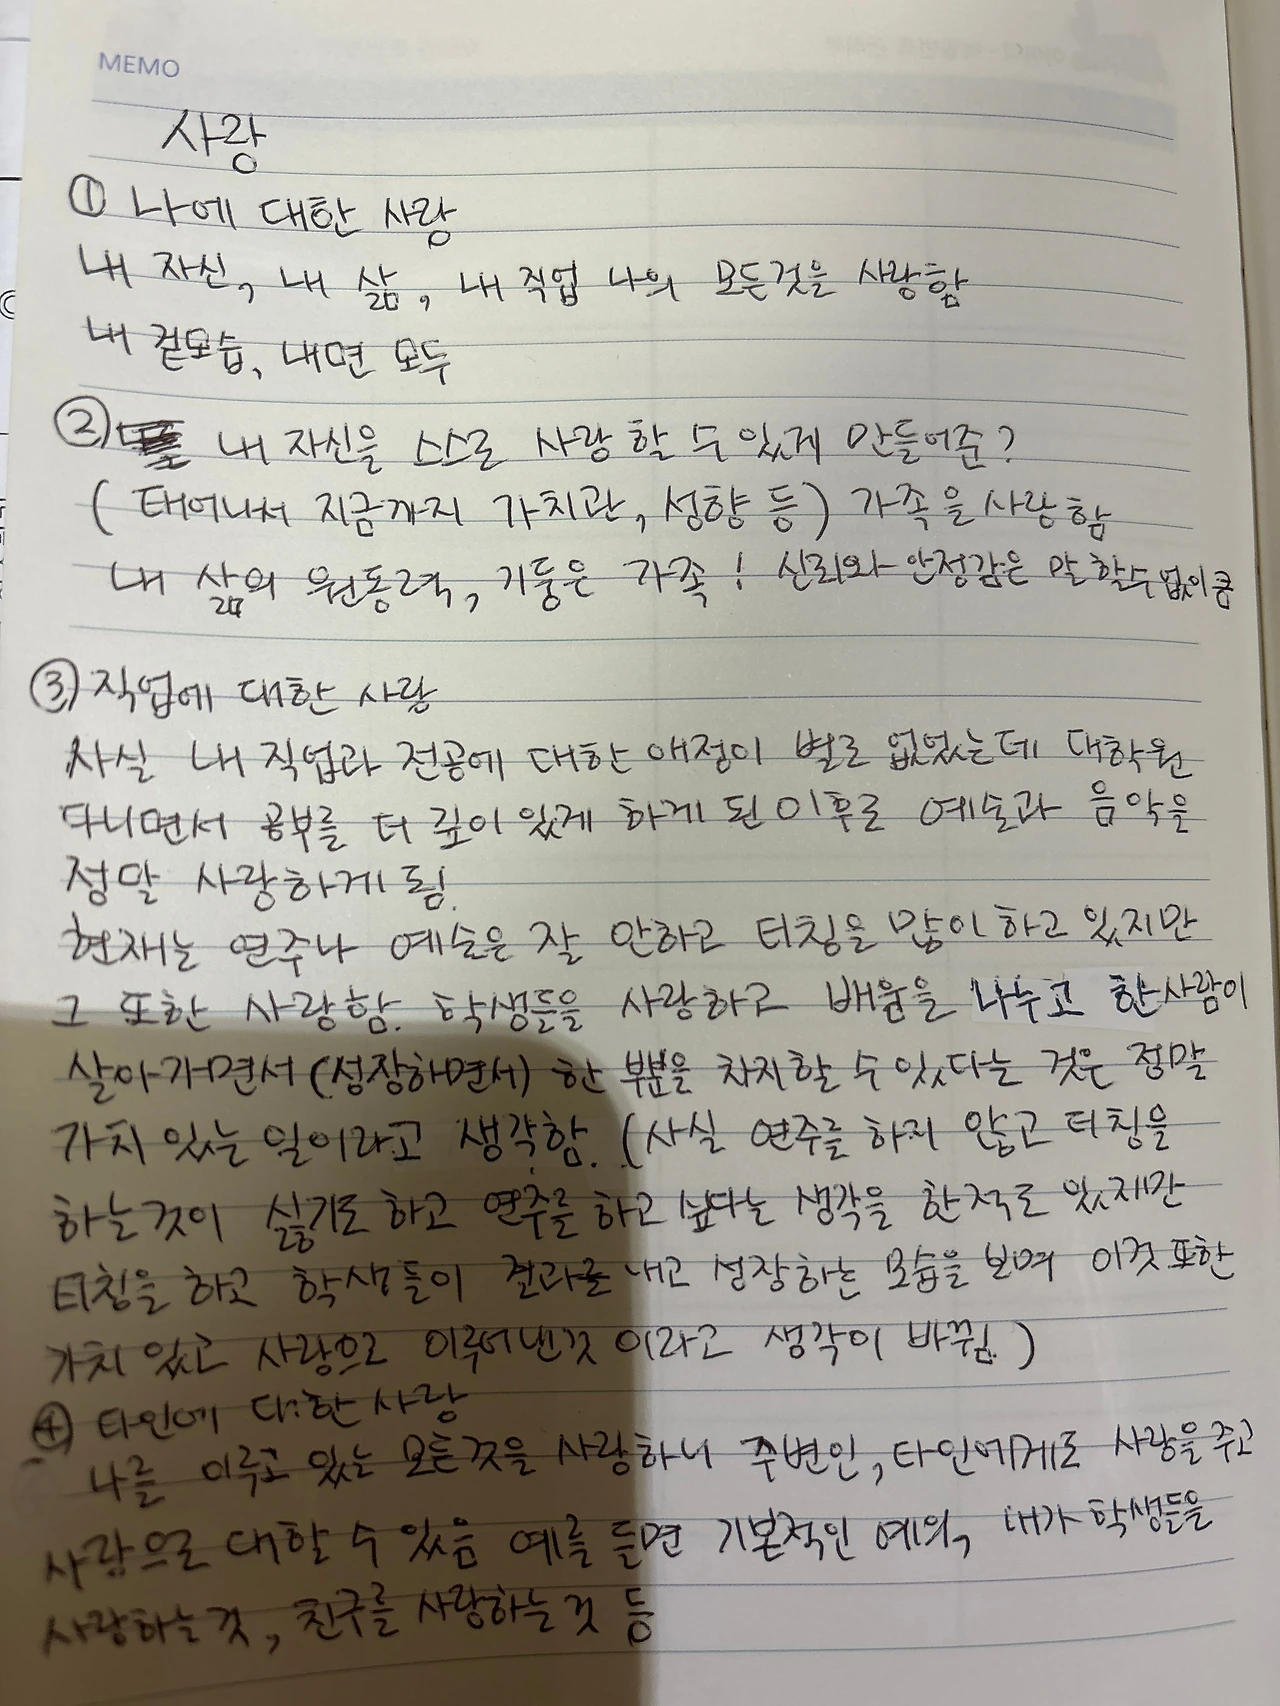 MEMO
사랑
① 나에 대한 사랑
내 자신, 내 삶, 내 직업 나의 모든것을 사랑함
내 겉모습, 내면 모두
② 내 자신을 스스로 사랑할 수 있게 만들어준?
( 태어나서 지금까지 가치관, 성향 등 ) 가족을 사랑함
내 삶의 원동력, 기둥은 가족! 신뢰와 안정감은 말할수없이큼
③ 직업에 대한 사랑
사실 내 직업과 전공에 대한 애정이 별로 없었는데 대학원
다니면서 공부를 더 깊이 있게 하게 된 이후로 예술과 음악을
정말 사랑하게 됨.
현재는 연주나 예술은 잘 안하고 티칭을 많이 하고 있지만
그 또한 사랑함. 학생들을 사랑하고 배움을 나누고 한사람이
살아가면서 (성장하면서) 한 부분을 차지할 수 있다는 것은 정말
가치 있는 일이라고 생각함. (사실 연주를 하지 않고 티칭을
하는것이 싫기도 하고 연주를 하고 싶다는 생각을 한적도 있지만
티칭을 하고 학생들이 결과를 내고 성장하는 모습을 보며 이것 또한
가치 있고 사랑으로 이루어낸것 이라고 생각이 바뀜.)
④ 타인에 대한 사랑
나를 이루고 있는 모든것을 사랑하니 주변인, 타인에게도 사랑을 주고
사랑으로 대할 수 있음 예를 들면 기본적인 예의, 내가 학생들을
사랑하는것, 친구를 사랑하는것 등